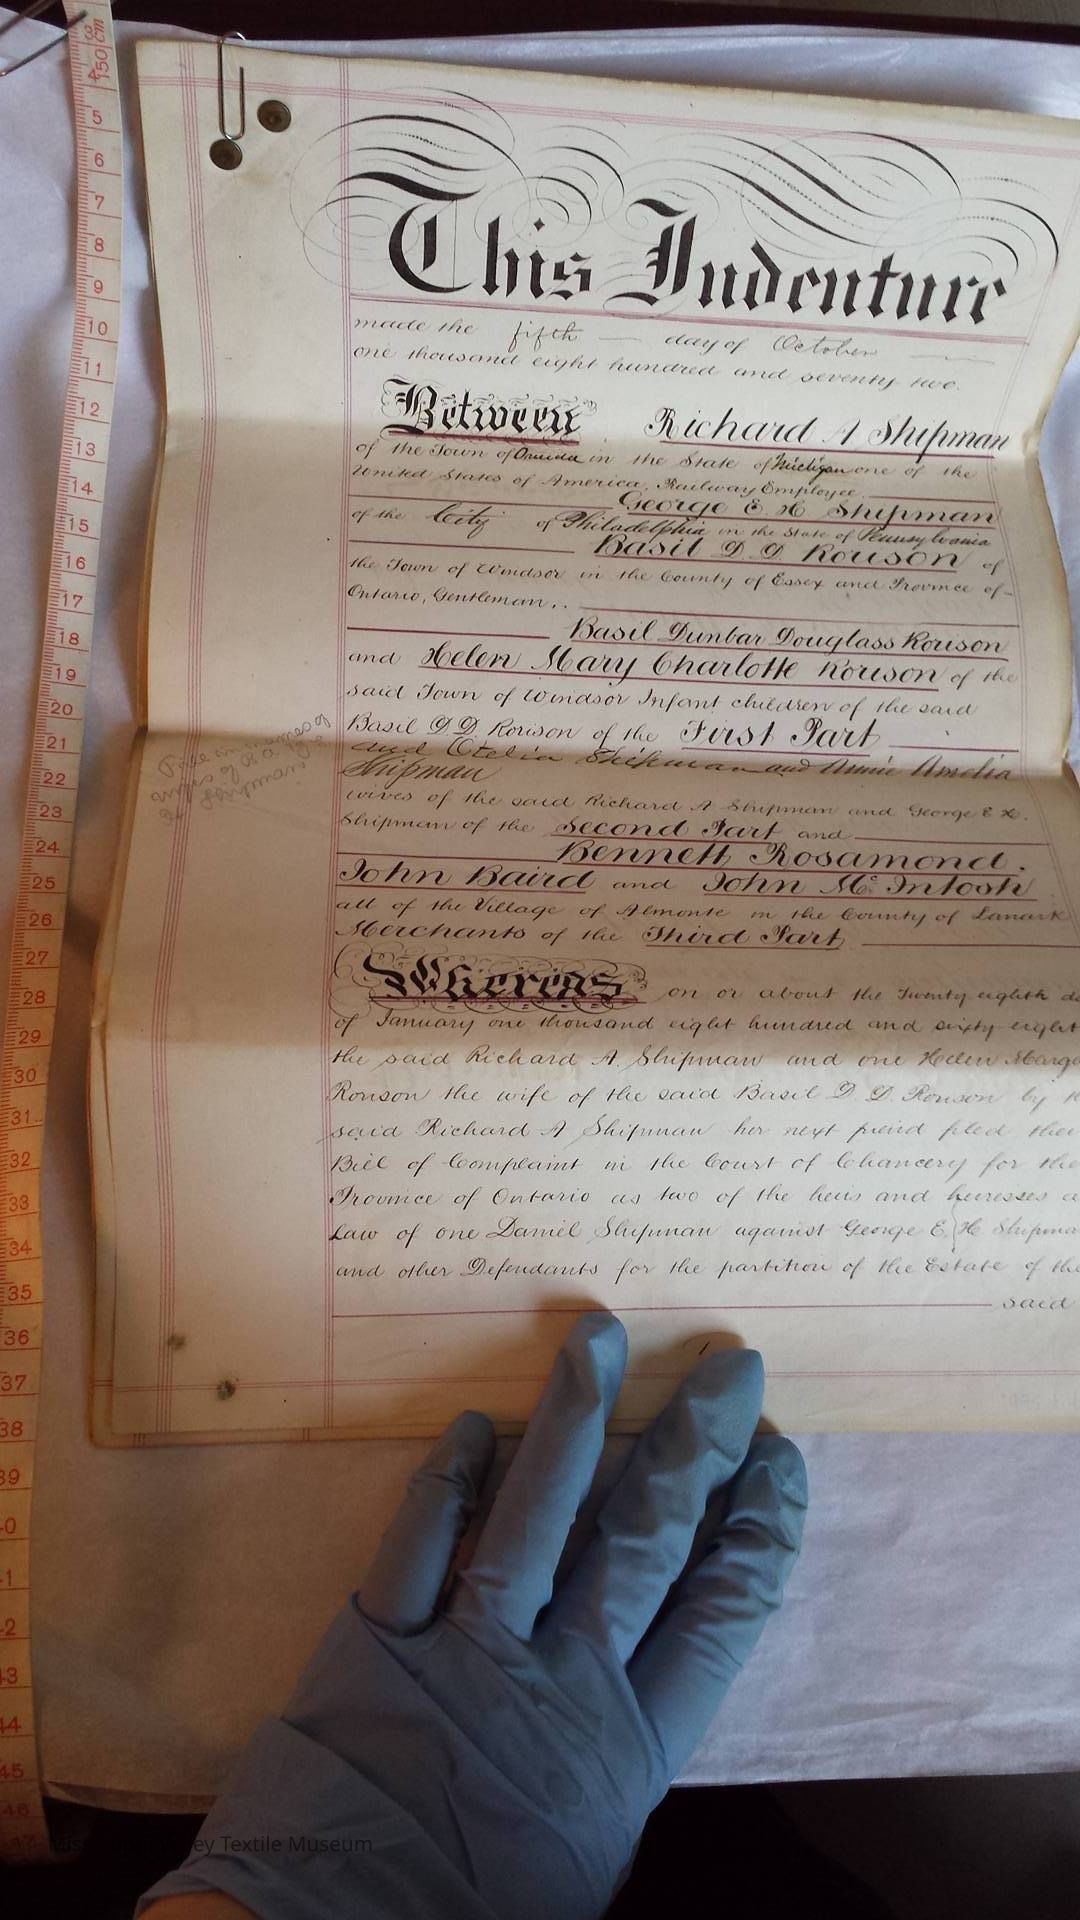 This Indenture
made the fifth — day of October
one thousand eight hundred and seventy two.
Between Richard A Shipman
of the Town of Oneida in the State of Michigan one of the
United States of America, Railway Employee.
George E. H Shipman
of the City of Philadelphia in the State of Pennsylvania
Basil D. D. Rouison of
the Town of Windsor in the County of Essex and Province of
Ontario, Gentleman,
Basil Dunbar Douglass Rouison
and Helen Mary Charlotte Rouison of the
said Town of Windsor Infant children of the said
Basil D.D. Rouison of the First Part
and Otelia Shipman and Annie Amelia
Shipman
wives of the said Richard A Shipman and George E H.
Shipman of the Second Part and
Bennett Rosamond.
John Baird and John Mc Intosh
all of the Village of Almonte in the County of Lanark
Merchants of the Third Part
Whereas on or about the Twenty eighth
of January one thousand eight hundred and sixty eight
the said Richard A. Shipman and one Helen
Rouison the wife of the said Basil D. D. Rouison by
said Richard A Shipman her next friend filed
Bill of Complaint in the Court of Chancery for the
Province of Ontario as two of the heirs and heiresses
Law of one Daniel Shipman against George E. H
and other Defendants for the partition of the Estate of the
said
1
names of
wives of
Shipman
150 cm
5
6
7
8
9
10
11
12
13
14
15
16
17
18
19
20
21
22
23
24
25
26
27
28
29
30
31
32
33
34
35
36
37
38
39
Textile Museum